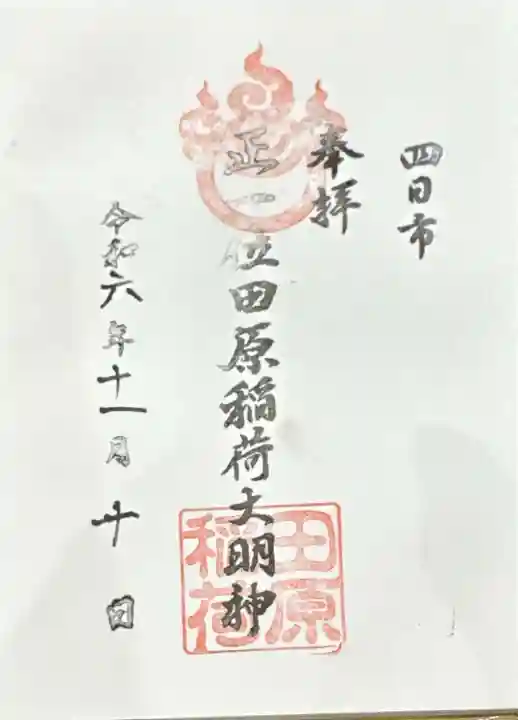 四日市
奉拝
正一位田原稲荷大明神
田原
稲荷
令和六年十一月十日